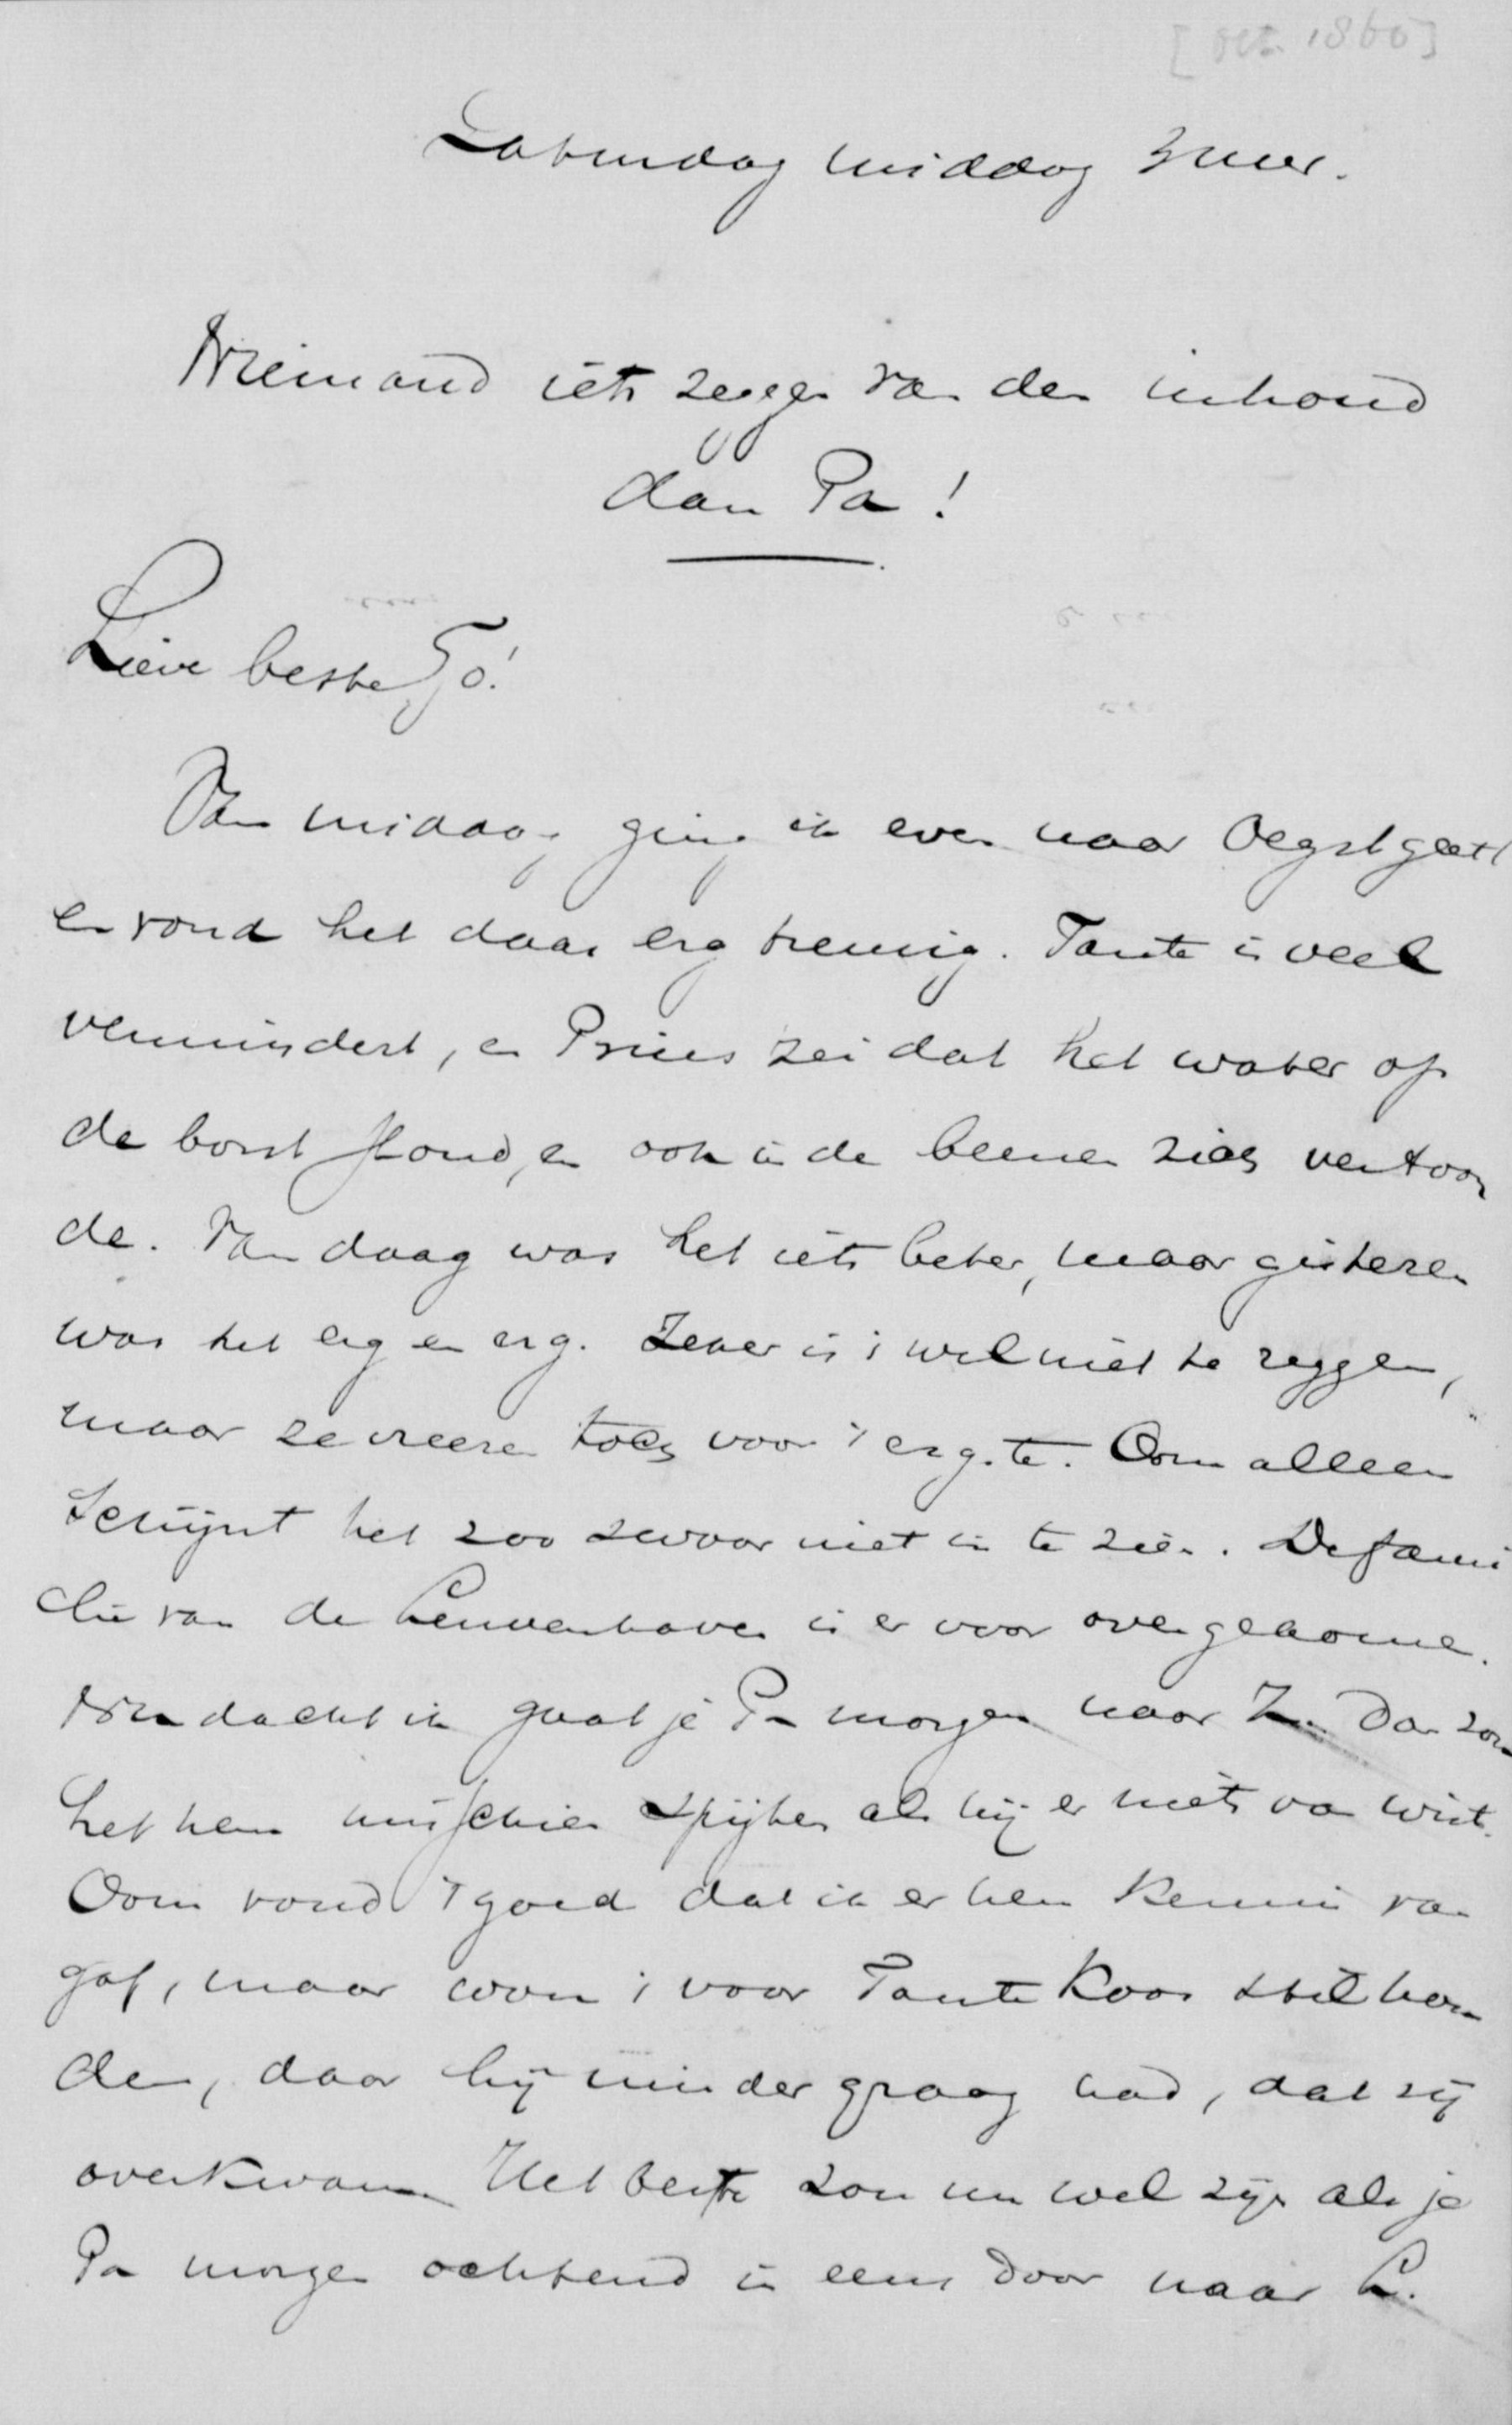 [Oct. 1860]
Saturdag middag 3 uur.
Niemand iets zeggen van den inhoud
dan Pa!
Lieve beste Jo!
Van middag ging ik even naar Oegstgeest
en vond het daar erg treurig. Tante is veel
verminderd, en Prins zei dat het water op
de borst stond, en ook in de beenen zich vertoon
de. Van daag was het iets beter, maar gisteren
was het erg en erg. Zeker is 't wel niet te zeggen,
maar ze vreezen toch voor 't ergste. Oom alleen
schijnt het zoo zwaar niet in te zien. De fami
lie van de Leuvenhaven is er voor overgekomen.
Nu dacht ik gaat je Pa morgen naar Z. Dan zou
het hem misschien spijten als hij er niets van wist.
Oom vond 't goed dat ik er hem kennis van
gaf, maar wou 't voor Tante Koos stil hou
den, daar hij minder graag had, dat zij
overkwam. Het beste zou nu wel zijn als je
Pa morgen ochtend in eens door naar L.